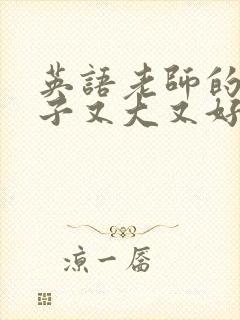 英語老師的
子又大又好
涼一層